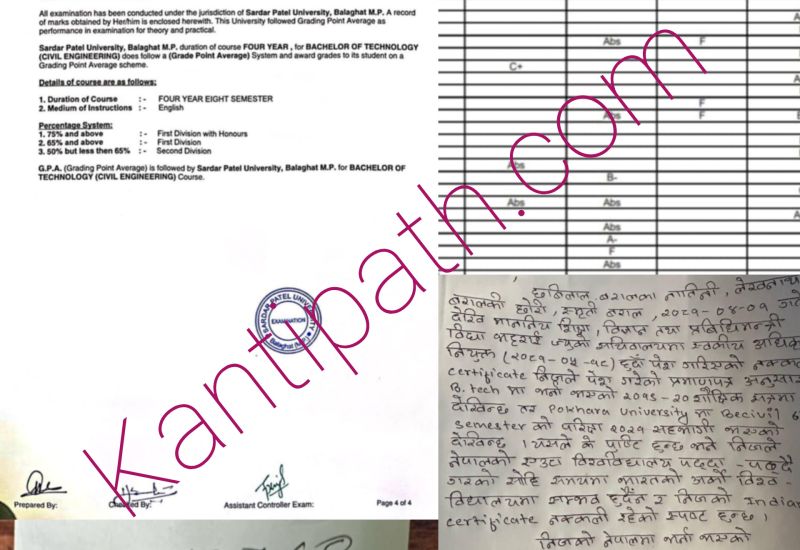 All examination has been conducted under the jurisdiction of Sardar Patel University, Balaghat M.P. A record
of marks obtained by Her/him is enclosed herewith. This University followed Grading Point Average as
performance in examination for theory and practical.
Sardar Patel University, Balaghat M.P. duration of course FOUR YEAR , for BACHELOR OF TECHNOLOGY
(CIVIL ENGINEERING) does follow a (Grade Point Average) System and award grades to its student on a
Grading Point Average scheme.
Details of course are as follows:
1. Duration of Course :- FOUR YEAR EIGHT SEMESTER
2. Medium of Instructions :- English
Percentage System:
1. 75% and above :- First Division with Honours
2. 65% and above :- First Division
3. 50% but less then 65% :- Second Division
G.P.A. (Grading Point Average) is followed by Sardar Patel University, Balaghat M.P. for BACHELOR OF
TECHNOLOGY (CIVIL ENGINEERING) Course.
SARDAR PATEL UNIVERSITY
EXAMINATION
Balaghat (M.P.)
Prepared By: Checked By: Assistant Controller Exam: Page 4 of 4
A
Abs F
C+
A
F
Abs F
Abs
B-
Abs Abs
A
Abs
A-
F
Abs
छबिलाल बरालका नातिनी, लेखनाथ
बरालकी छोरी, स्मृती बराल, २०८१-०४-०१ गते
देखि माननिय शिक्षा, विज्ञान तथा प्रबिधिमन्त्री
विद्या भट्टराई ज्यूको सचिवालयमा स्वकीय अधिकृत
नियुक्त (२०८१-०५-१८) हुदाँ पेश गरिएको नक्कली
certificate निजले पेश गरेको प्रमाणपत्र अनुसार
B.tech मा भर्ना भएको २०१६-२० शैक्षिक सत्रमा
देखिन्छ तर Pokhara University मा Becivil 6
semester को परिक्षा २०२१ सहभागी भएको
देखिन्छ । यसले के पुष्टि हुन्छ भने निजले
नेपालको एउटा विश्वविद्यालय पढ्दा-पढ्दै
गरेको सोहि समयमा भारतको अर्को विश्व-
विद्यालयमा सम्भव हुदैन र निजको Indian
certificate नक्कली रहेको स्पष्ट हुन्छ ।
निजको नेपालमा भर्ना भएको
Kantipath.com